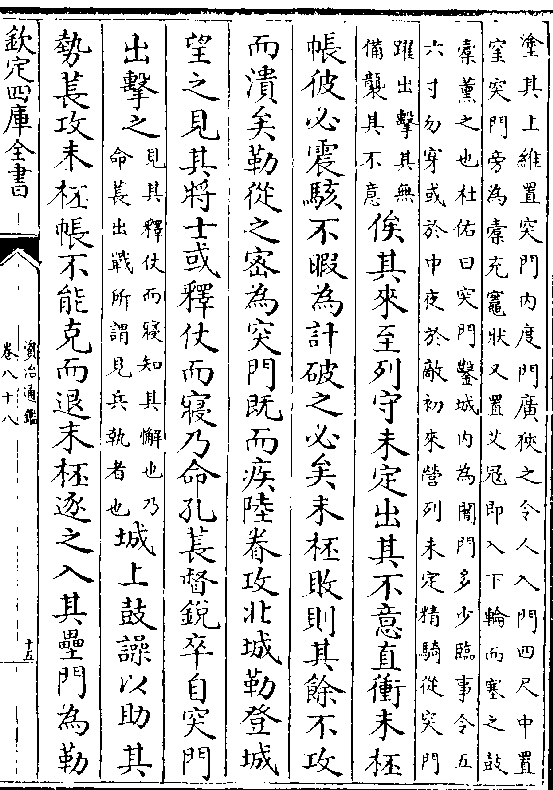 塗其上維置突門内度門廣狹之令人入門四尺中置
窒突門旁為橐充竈狀又置艾冦即入下輪而塞之鼓
橐薰之也杜佑曰突門鑿城内為闇門多少臨事令五
六寸勿穿或於中夜於敵初來營列未定精騎從突門
躍出擊其無
備襲其不意
俟其來至列守未定出其不意直衝末柸
帳彼必震駭不暇為計破之必矣末柸敗則其餘不攻
而潰矣勒從之宻為突門既而疾陸眷攻北城勒登城
望之見其將士或釋仗而寢乃命孔萇督銳卒自突門
出擊之
見其釋仗而寢知其懈也乃
命萇出戰所謂見兵執者也
城上鼓譟以助其
勢萇攻末柸帳不能克而退末柸逐之入其壘門為勒
欽定四庫全書
資治通鑑
卷八十八
十五